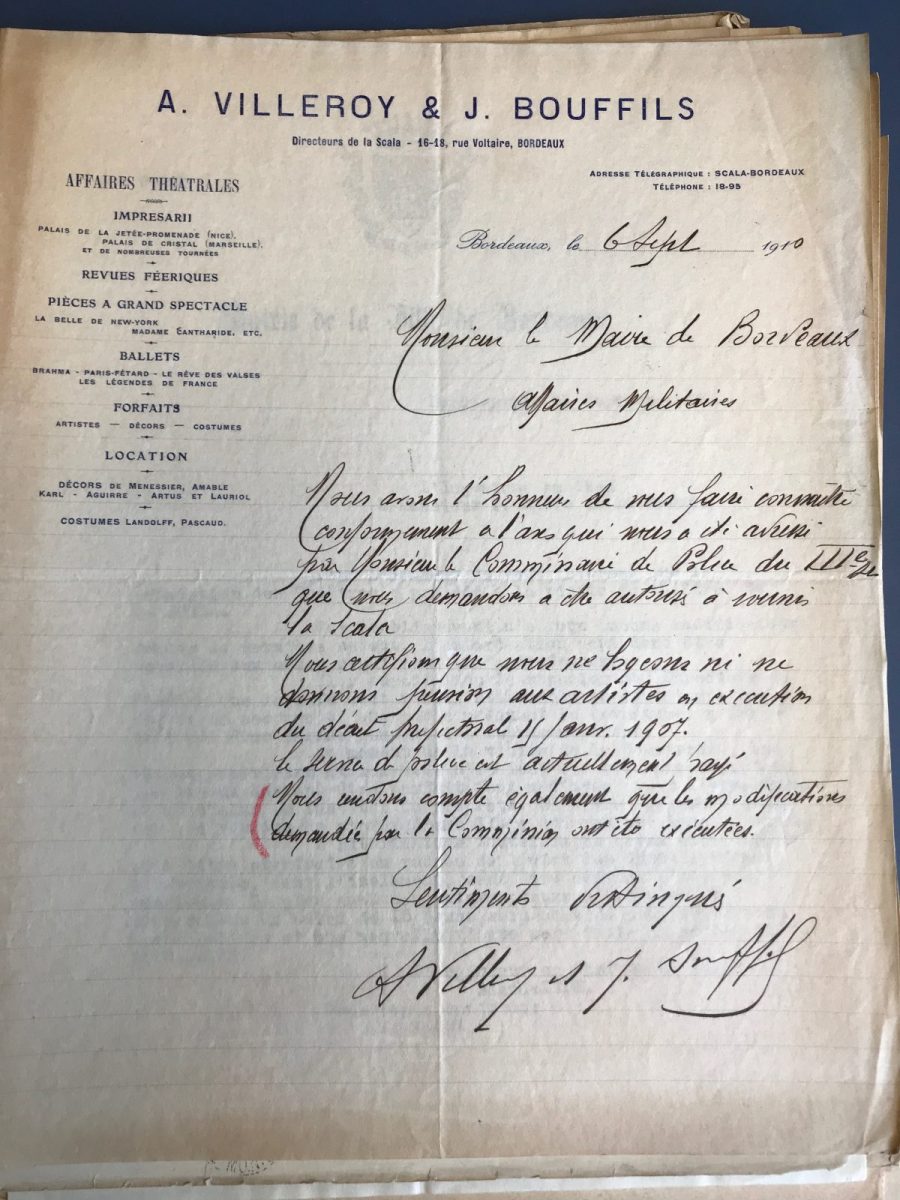 A. VILLEROY & J. BOUFFILS
Directeurs de la Scala - 16-18, rue Voltaire, BORDEAUX
ADRESSE TÉLÉGRAPHIQUE : SCALA-BORDEAUX
TÉLÉPHONE : 18-95
AFFAIRES THÉATRALES
IMPRESARII
PALAIS DE LA JETÉE-PROMENADE (NICE).
PALAIS DE CRISTAL (MARSEILLE).
ET DE NOMBREUSES TOURNÉES
REVUES FÉERIQUES
PIÈCES A GRAND SPECTACLE
LA BELLE DE NEW-YORK
MADAME CANTHARIDE, ETC.
BALLETS
BRAHMA - PARIS-FÉTARD - LE RÊVE DES VALSES
LES LÉGENDES DE FRANCE
FORFAITS
ARTISTES — DÉCORS — COSTUMES
LOCATION
DÉCORS DE MENESSIER, AMABLE
KARL - AGUIRRE - ARTUS ET LAURIOL
COSTUMES LANDOLFF, PASCAUD.
Bordeaux, le 6 Sept 1910
Monsieur le Maire de Bordeaux
Affaires Militaires
Nous avons l'honneur de vous faire connaitre
conformement a l'avis qui nous a été adressé
par Monsieur le Commissaire de Police du IIIe
que nous demandons a etre autorisés à
la Scala
Nous certifions que nous ne logeons ni ne
donnons pension aux artistes en exécution
du décret prefectoral 15 Janv. 1907.
le service de police est actuellement payé
Nous rendons compte également que les modifications
demandée par la Commission ont été exécutées.
Sentiments distingués
A Villeroy et J. Bouffils